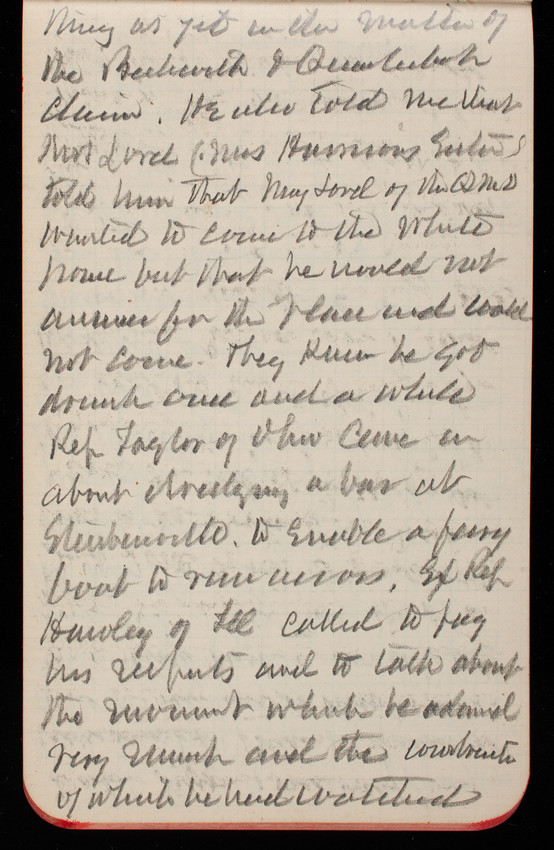 thing as yet in the matter of
the Beckwith & Quackenbush
claim. He also told me that
Mrs Lord (Mrs Harrisons Sister)
told him that Maj Lord of the QMD
wanted to come to the White
house but that he would not
answer for the place and could
not come. They knew he got
drunk once and a while
Rep Taylor of Ohio came in
about dredging a bar at
Steubenville. to enable a ferry
boat to run across, Ex Rep
Hawley of Ill called to pay
his respects and to talk about
the monument which he admired
very much and the construction
of which he had watched